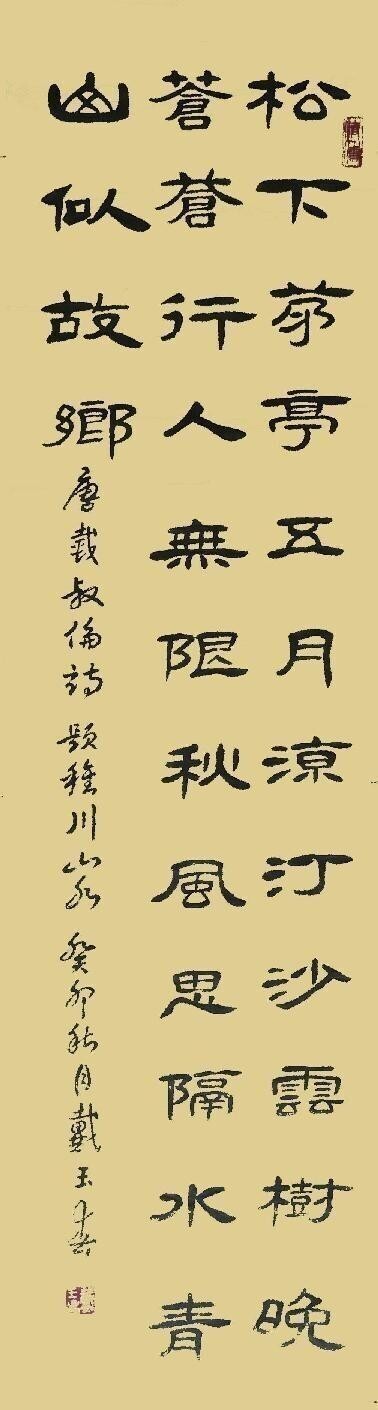 松下茅亭五月涼汀沙雲樹晚
蒼蒼行人無限秋風思隔水青
山似故鄉
唐戴叔倫詩 題稚川山水 癸卯秋月戴玉春